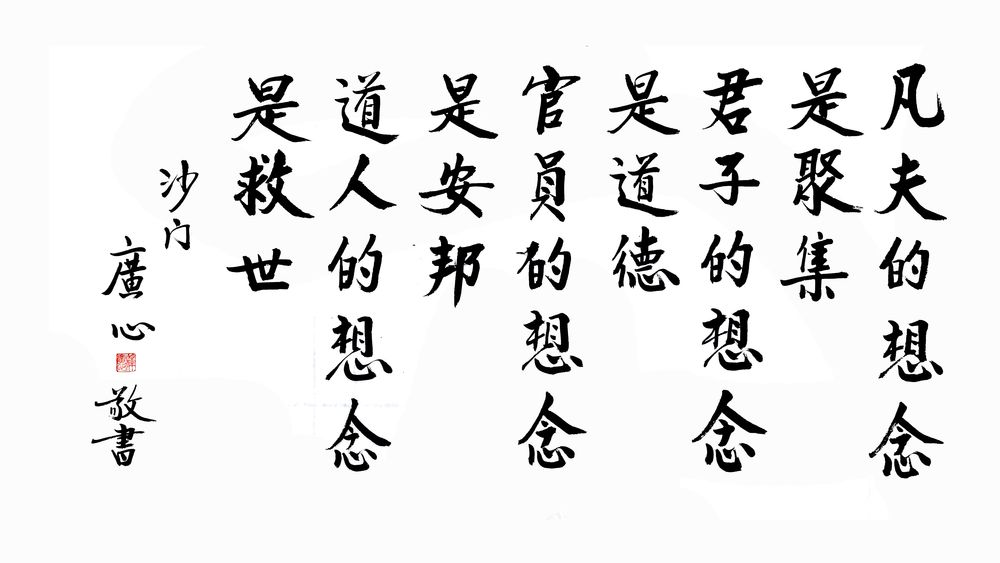 凡夫的想念
是聚集
君子的想念
是道德
官員的想念
是安邦
道人的想念
是救世
沙门
廣心
敬書